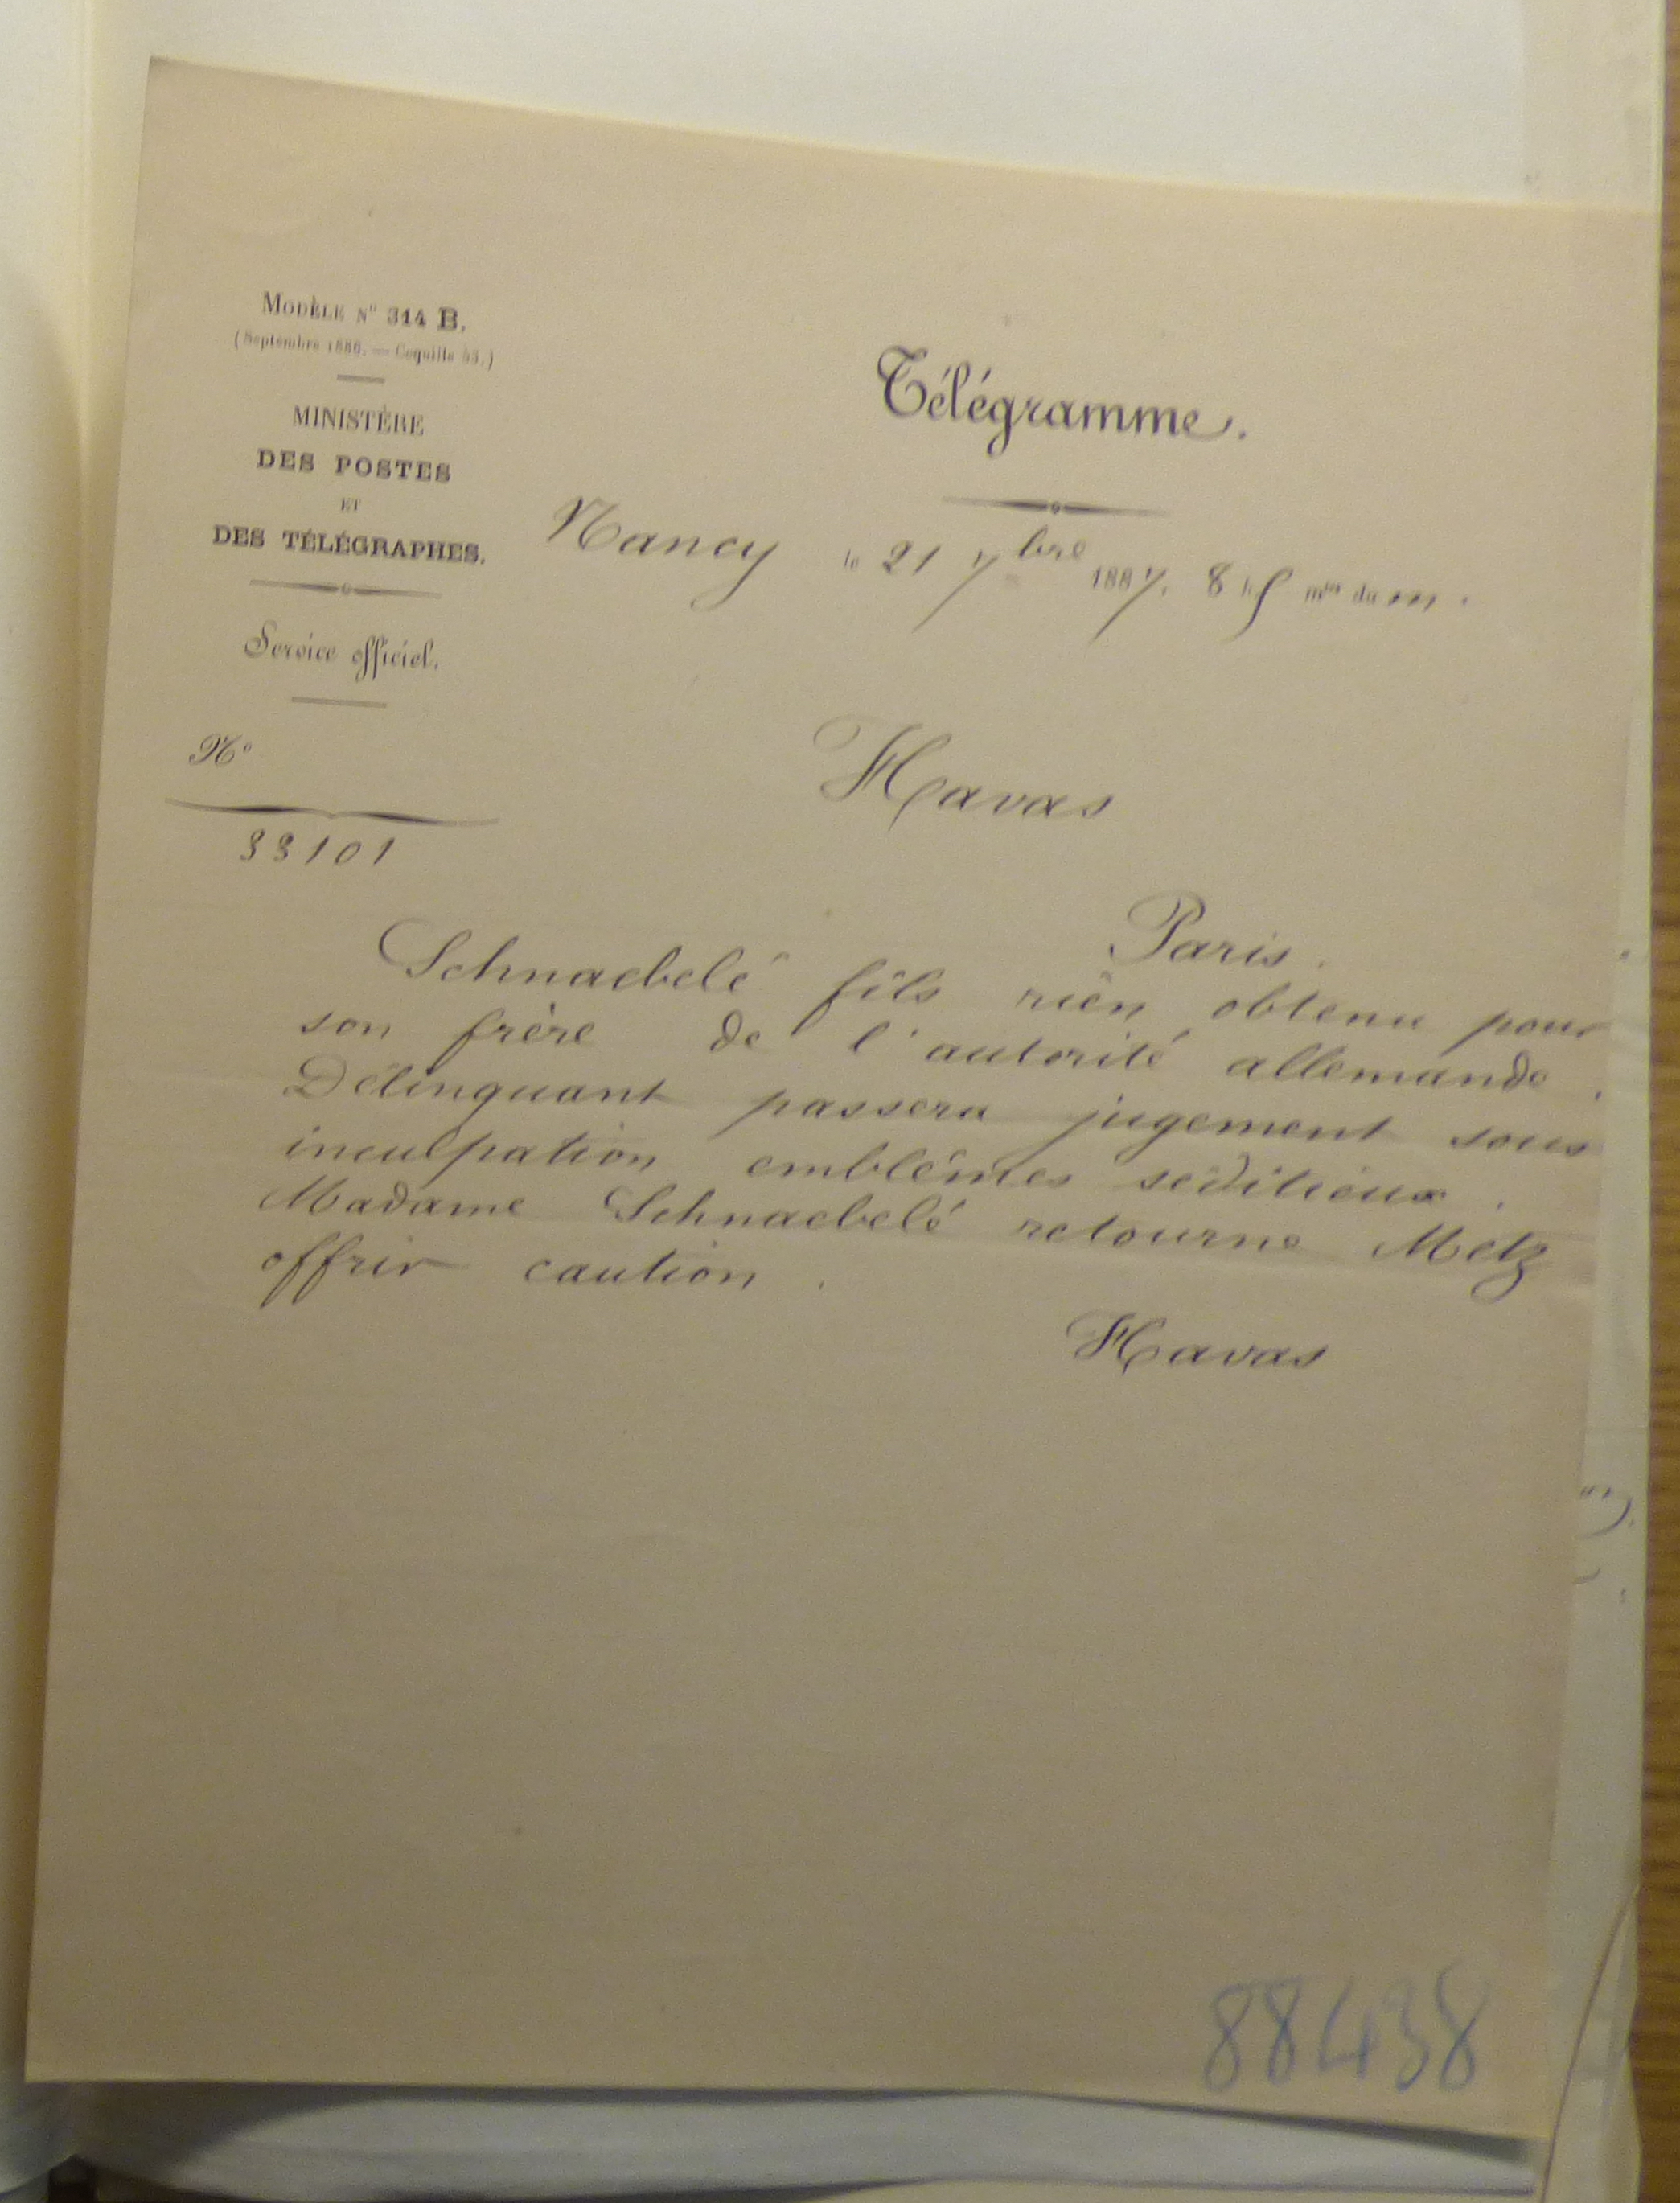 MODÈLE N° 314 B.
(Septembre 1886. — Coquille 53.)
MINISTÈRE
DES POSTES
ET
DES TÉLÉGRAPHES.
Service officiel.
N°
33101
Télégramme.
Nancy le 21 7bre 1887, 8 h 5 mtes du m.
Havas
Paris.
Schnaebelé fils rien obtenu pour
son frère de l'autorité allemande.
Délinquant passera jugement sous
inculpation emblêmes séditieux.
Madame Schnaebelé retourne Metz
offrir caution.
Havas
88438